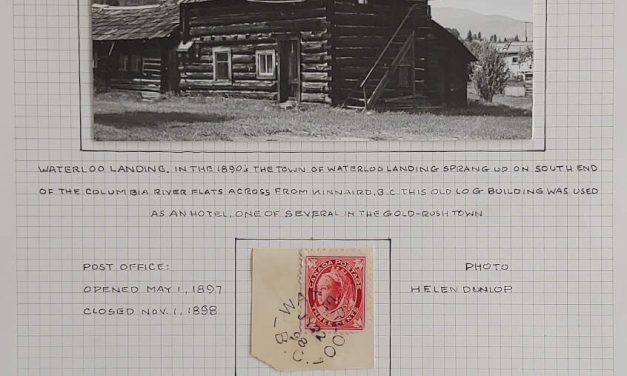 WATERLOO LANDING. IN THE 1890s THE TOWN OF WATERLOO LANDING SPRANG UP ON SOUTH END
OF THE COLUMBIA RIVER FLATS ACROSS FROM KINNAIRD, B.C. THIS OLD LOG BUILDING WAS USED
AS AN HOTEL, ONE OF SEVERAL IN THE GOLD-RUSH TOWN
POST OFFICE:
OPENED MAY 1, 1897
CLOSED NOV. 1, 1898
CANADA POSTAGE
THREE CENTS
PHOTO
HELEN DUNLOP